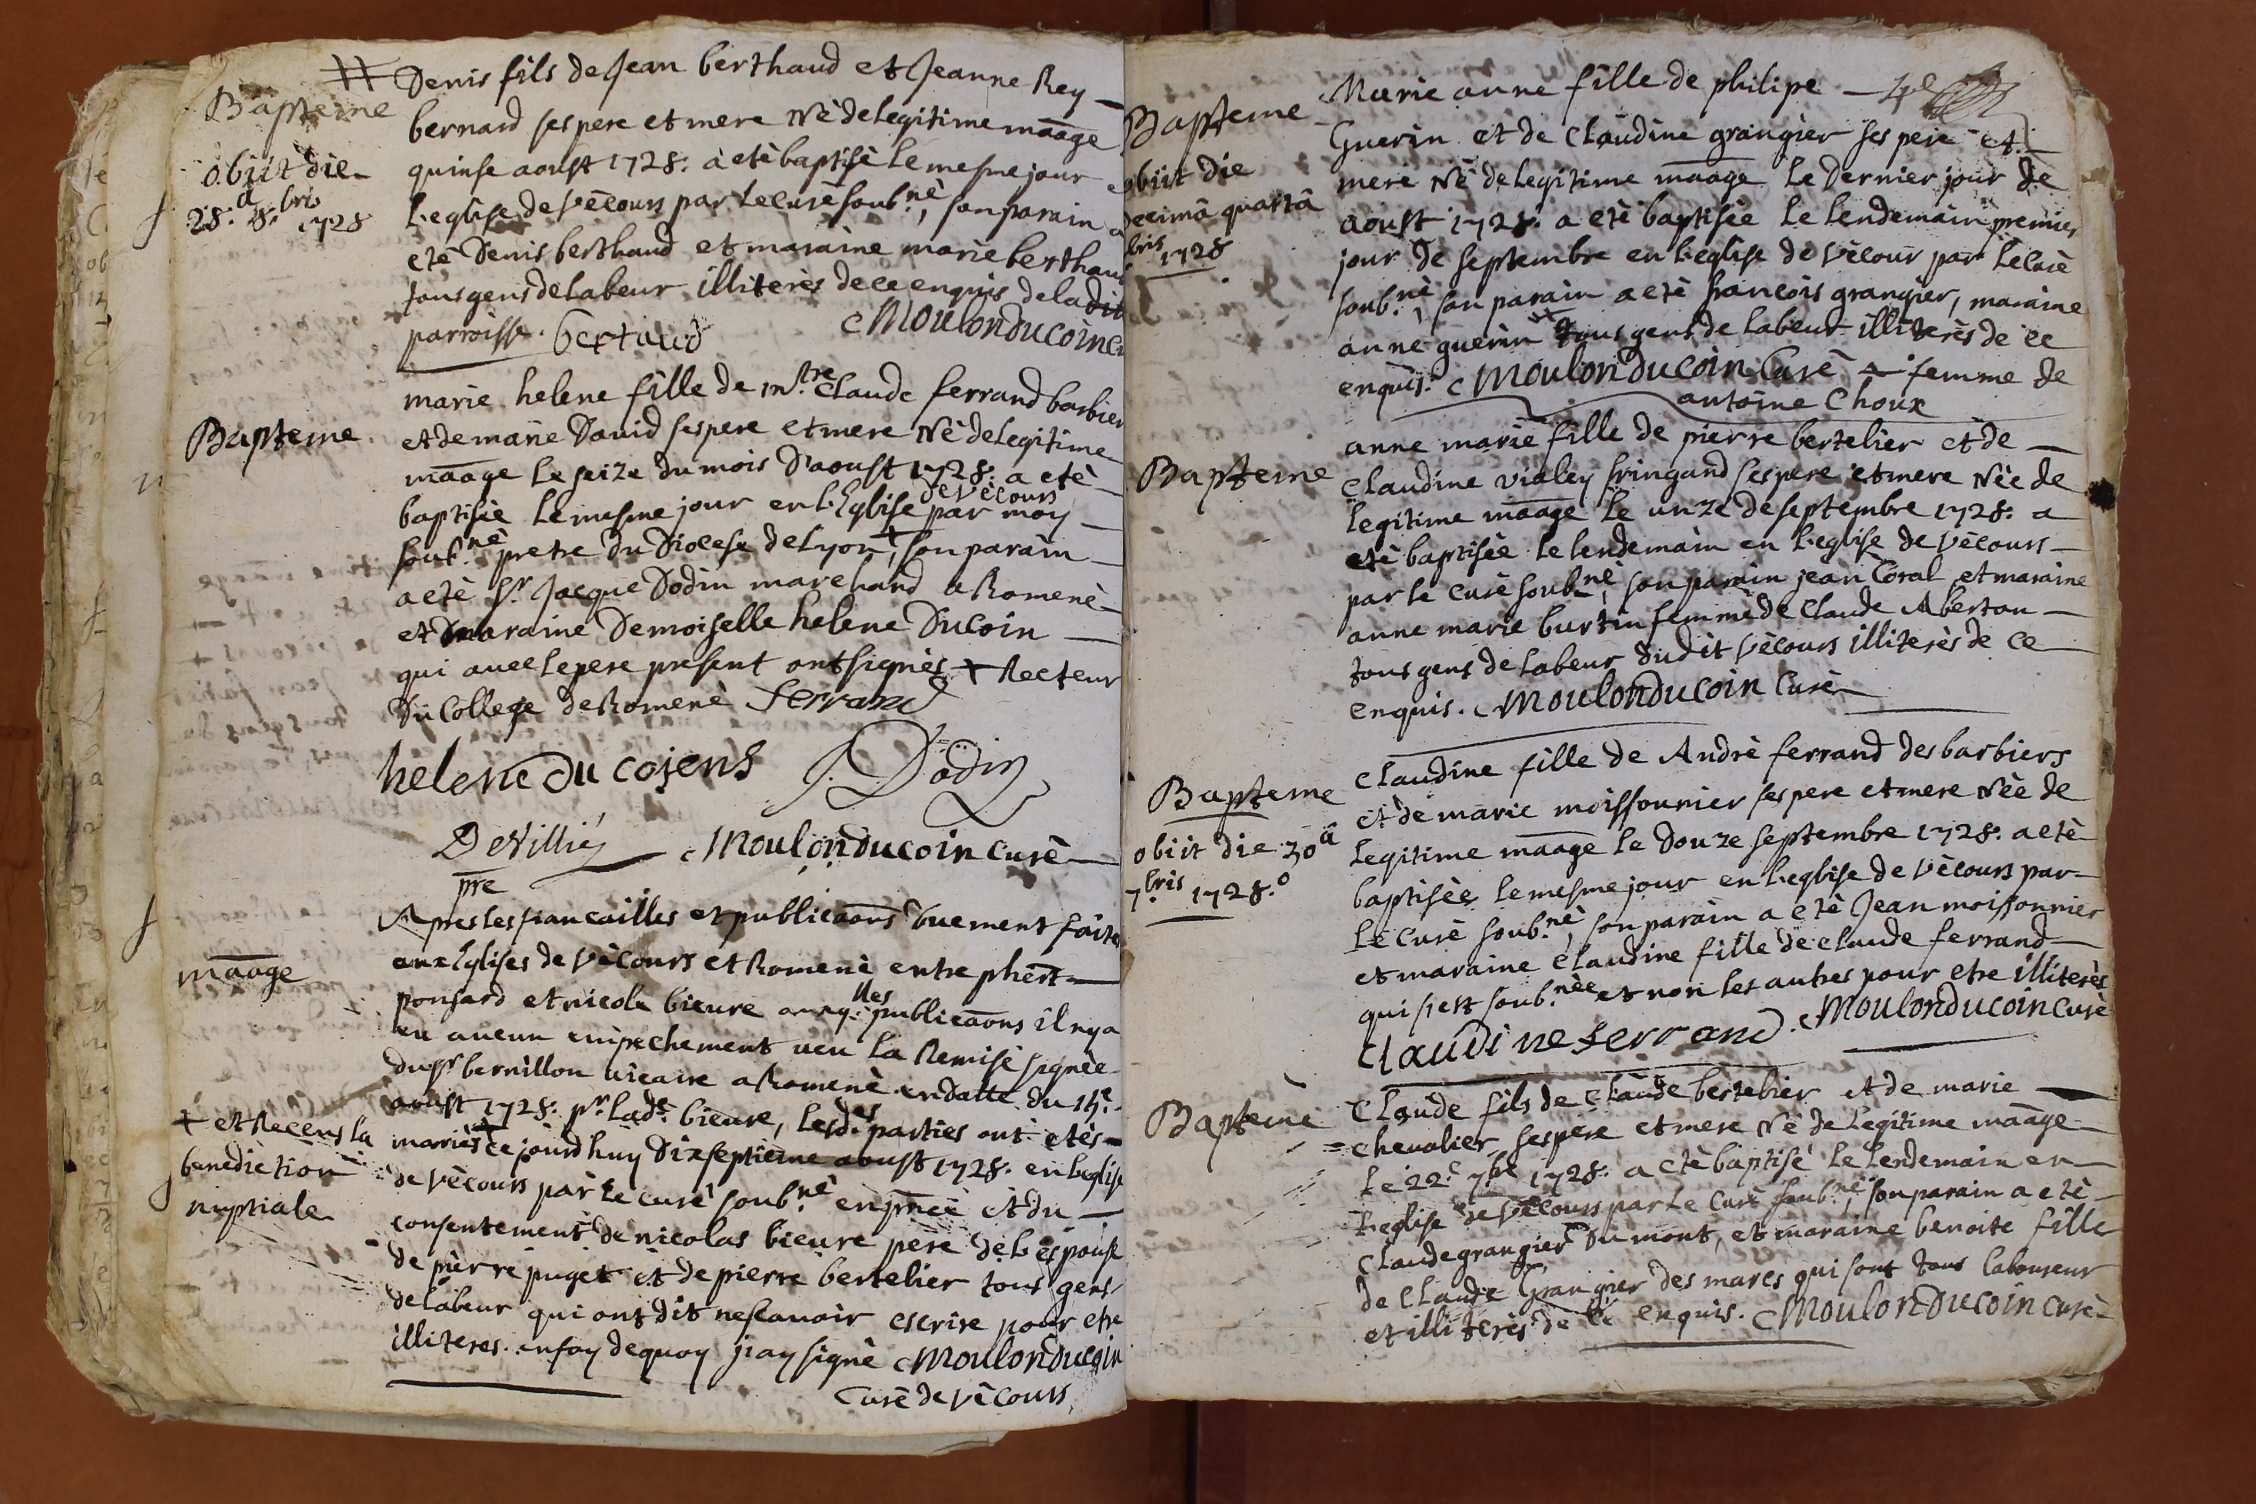 Bapteme
Denis fils de Jean berthaud et Jeanne Rey
bernard ses pere et mere Nè de legitime maage
obiit die
28.a 8.bris 1728
quinse aoust 1728. à etè baptisè le mesme jour
Leglise de Vècours par le curè soub.nè, son parain
etè Denis berthaud et maraine marie berthaud
tous gens de labeur illiterès de ce enquis de ladit
parroisse. bertaud Moulonducoin
Bapteme
marie helene fille de m.tre Claude ferrand barbier
et de marie David ses pere et mere Nè de legitime
maage le seize du mois D'aoust 1728. a etè
baptisèe le mesme jour en L'Eglise de Vècours par moy
soub.nè pretre du Diocese de Lyon +, son parain
a etè Sr. Jacque Dodin marchand a Romenè
et maraine Demoiselle helene Ducoin
qui avec le pere present ont signès + Recteur
Du College de Romenè ferrand
helene du cojens J. Dodin
DeVillié Moulonducoin curè
pre
maage
Apres les fiancailles et publicaons buement faite
aux Eglises de Vècours et Romenè entre phert
ponsard et nicole bieure auxq.lles publicaons il ny a
eu aucun empechement veu la Remise signèe
du Sr bernillon vicaire a Romenè en datte du 14e.
aoust 1728. pr lade. bieure, lesd.es parties ont etès
+ et Receus la
benediction
nuptiale
mariès + ce jourdhuy Dixseptieme aoust 1728. en leglise
de Vècours par le curè soub.nè en pnce et du
consentement de nicolas bieure pere de L'espouse
de pierre puget et de pierre bertelier tous gens
de labeur qui ont dit nescavoir escrire pour etre
illiteres. en foy de quoy j'ay signè Moulonducoin
Curè de Vècours
Bapteme
Marie anne fille de philipe
Guerin et de Claudine grangier ses pere et
obiit die
decimâ quartâ
bris 1728
mere Nè de legitime maage le Dernier jour de
aoust 1728. a etè baptisèe le lendemain premier
jour de septembre en Leglise de Vècour par le Curè
soub.nè, son parain a etè francois grangier, maraine
anne guerin tous gens de labeur illiterès de ce
enquis. Moulonducoin Curè femme de
antoine Choux
Bapteme
anne marie fille de pierre bertelier et de
Claudine vialey fringand ses pere et mere Nèe de
legitime maage le unze de septembre 1728. a
etè baptisèe le lendemain en Leglise de Vècours
par le curè soub.nè, son parain jean Coral et maraine
anne marie burtin femme de Claude Aberton
tous gens de labeur dudit Vècours illiterès de ce
enquis. Moulonducoin Curè
Bapteme
Claudine fille de Andrè ferrand des barbiers
et de marie moissonnier ses pere et mere Nèe de
obiit die 30â
7.bris 1728.o
legitime maage le Douze septembre 1728. a etè
baptisèe le mesme jour en Leglise de Vècours par
Le curè soub.nè, son parain a etè Jean moissonnier
et maraine Claudine fille de claude ferrand
qui s'est soub.nèe et non les autres pour etre illiterès
Claudine ferrand. Moulonducoin Curè
Bapteme
Claude fils de Claude bertelier et de marie
chevalier, ses pere et mere Nè de legitime maage
Le 22.e 7.bre 1728. a etè baptisè le lendemain en
Leglise de Vècours par le Curè soub.nè son parain a etè
Claude grangier Dumont, et maraine benoite fille
de Claude Grangier des mares qui sont tous laboureur
et illiterès de ce enquis. Moulonducoin Curè